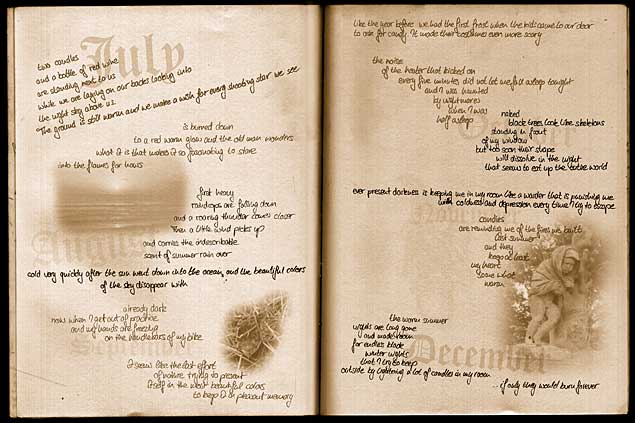 July
two candles
and a bottle of red wine
are standing next to us
while we are laying on our backs looking into
the night sky above us
The ground is still warm and we make a wish for every shooting star we see
is burned down
to a red warm glow and the old man wonders
what it is that makes it so fascinating to stare
into the flames for hours
August
first heavy
raindrops are falling down
and a roaring thunder comes closer
then a little wind picks up
and carries the indescribable
scent of summer rain over
cold very quickly after the sun went down into the ocean and the beautiful colors
of the sky disappear with
already dark
now when I get out of practice
and my hands are freezing
on the handlebars of my bike
It seems like the last effort
of nature trying to present
itself in the most beautiful colors
to keep it in pleasant memory
like the year before we had the first frost when the kids came to our door
to ask for candy It made their costumes even more scary
the noise
of the heater that kicked on
every five minutes did not let me fall asleep tonight
and I was haunted
by nightmares
when I was
half asleep
naked
black trees look like skeletons
standing in front
of my window
but too soon their shape
will dissolve in the night
that seems to eat up the entire world
ever present darkness is keeping me in my room like a warder that is punishing me
with coldness and depression every time I try to escape
November
candles
are reminding me of the fires we built
last summer
and they
keep at least
my heart
some what
warm
December
the warm summer
nights are long gone
and made room
for endless black
winter nights
that I try to keep
outside by lightening a lot of candles in my room
... if only they would burn forever